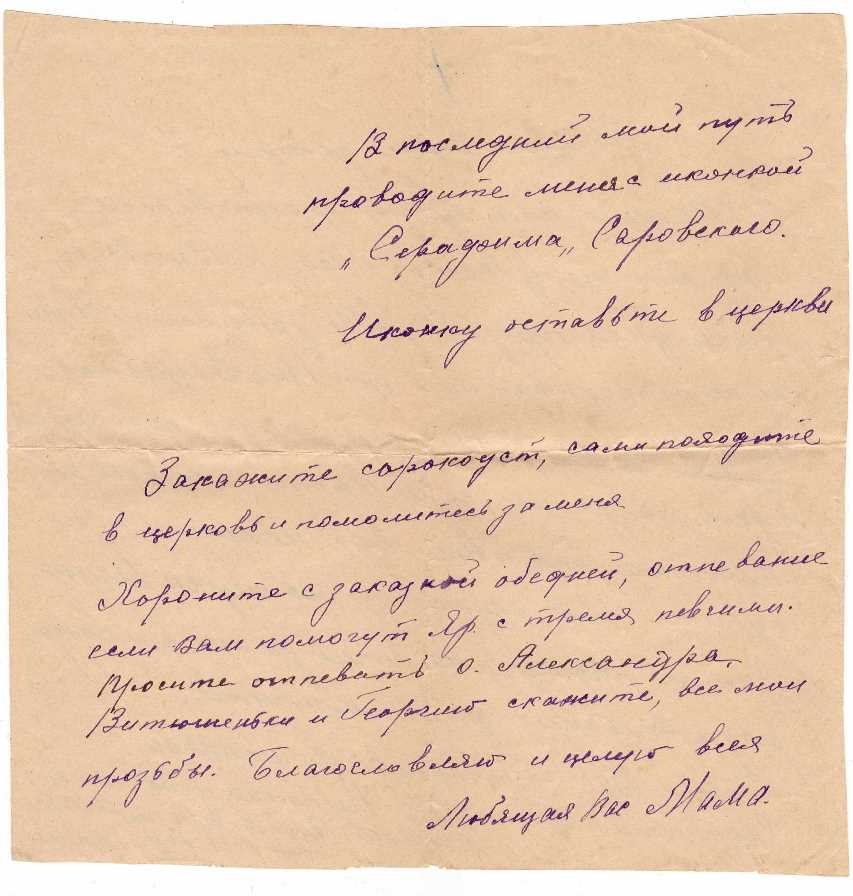 В последний мой путь
проводите меня с иконкой
„Серафима„ Саровского.
Иконку оставьте в церкви
Закажите сорокоуст, сами походите
в церковь и помолитесь за меня
Хороните с заказной обедней, отпевание
если Вам помогут Яр. с тремя певчими.
Просите отпевать о. Александра,
Витюшеньки и Георгию скажите, все мои
прозьбы. Благословляю и целую всех
Любящая Вас Мама.